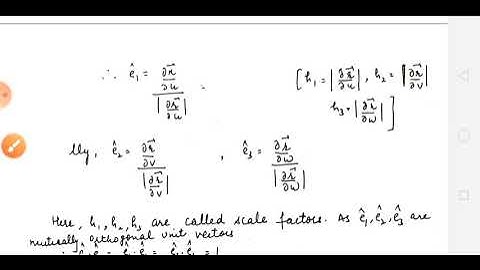 ∴ ê₁ = ∂r⃗/∂u / |∂r⃗/∂u| [h₁ = |∂r⃗/∂u|, h₂ = |∂r⃗/∂v|
h₃ = |∂r⃗/∂w|]
lly, ê₂ = ∂r⃗/∂v / |∂r⃗/∂v| , ê₃ = ∂r⃗/∂w / |∂r⃗/∂w|
Here, h₁, h₂, h₃ are called scale factors. As ê₁, ê₂, ê₃ are
mutually orthogonal unit vectors